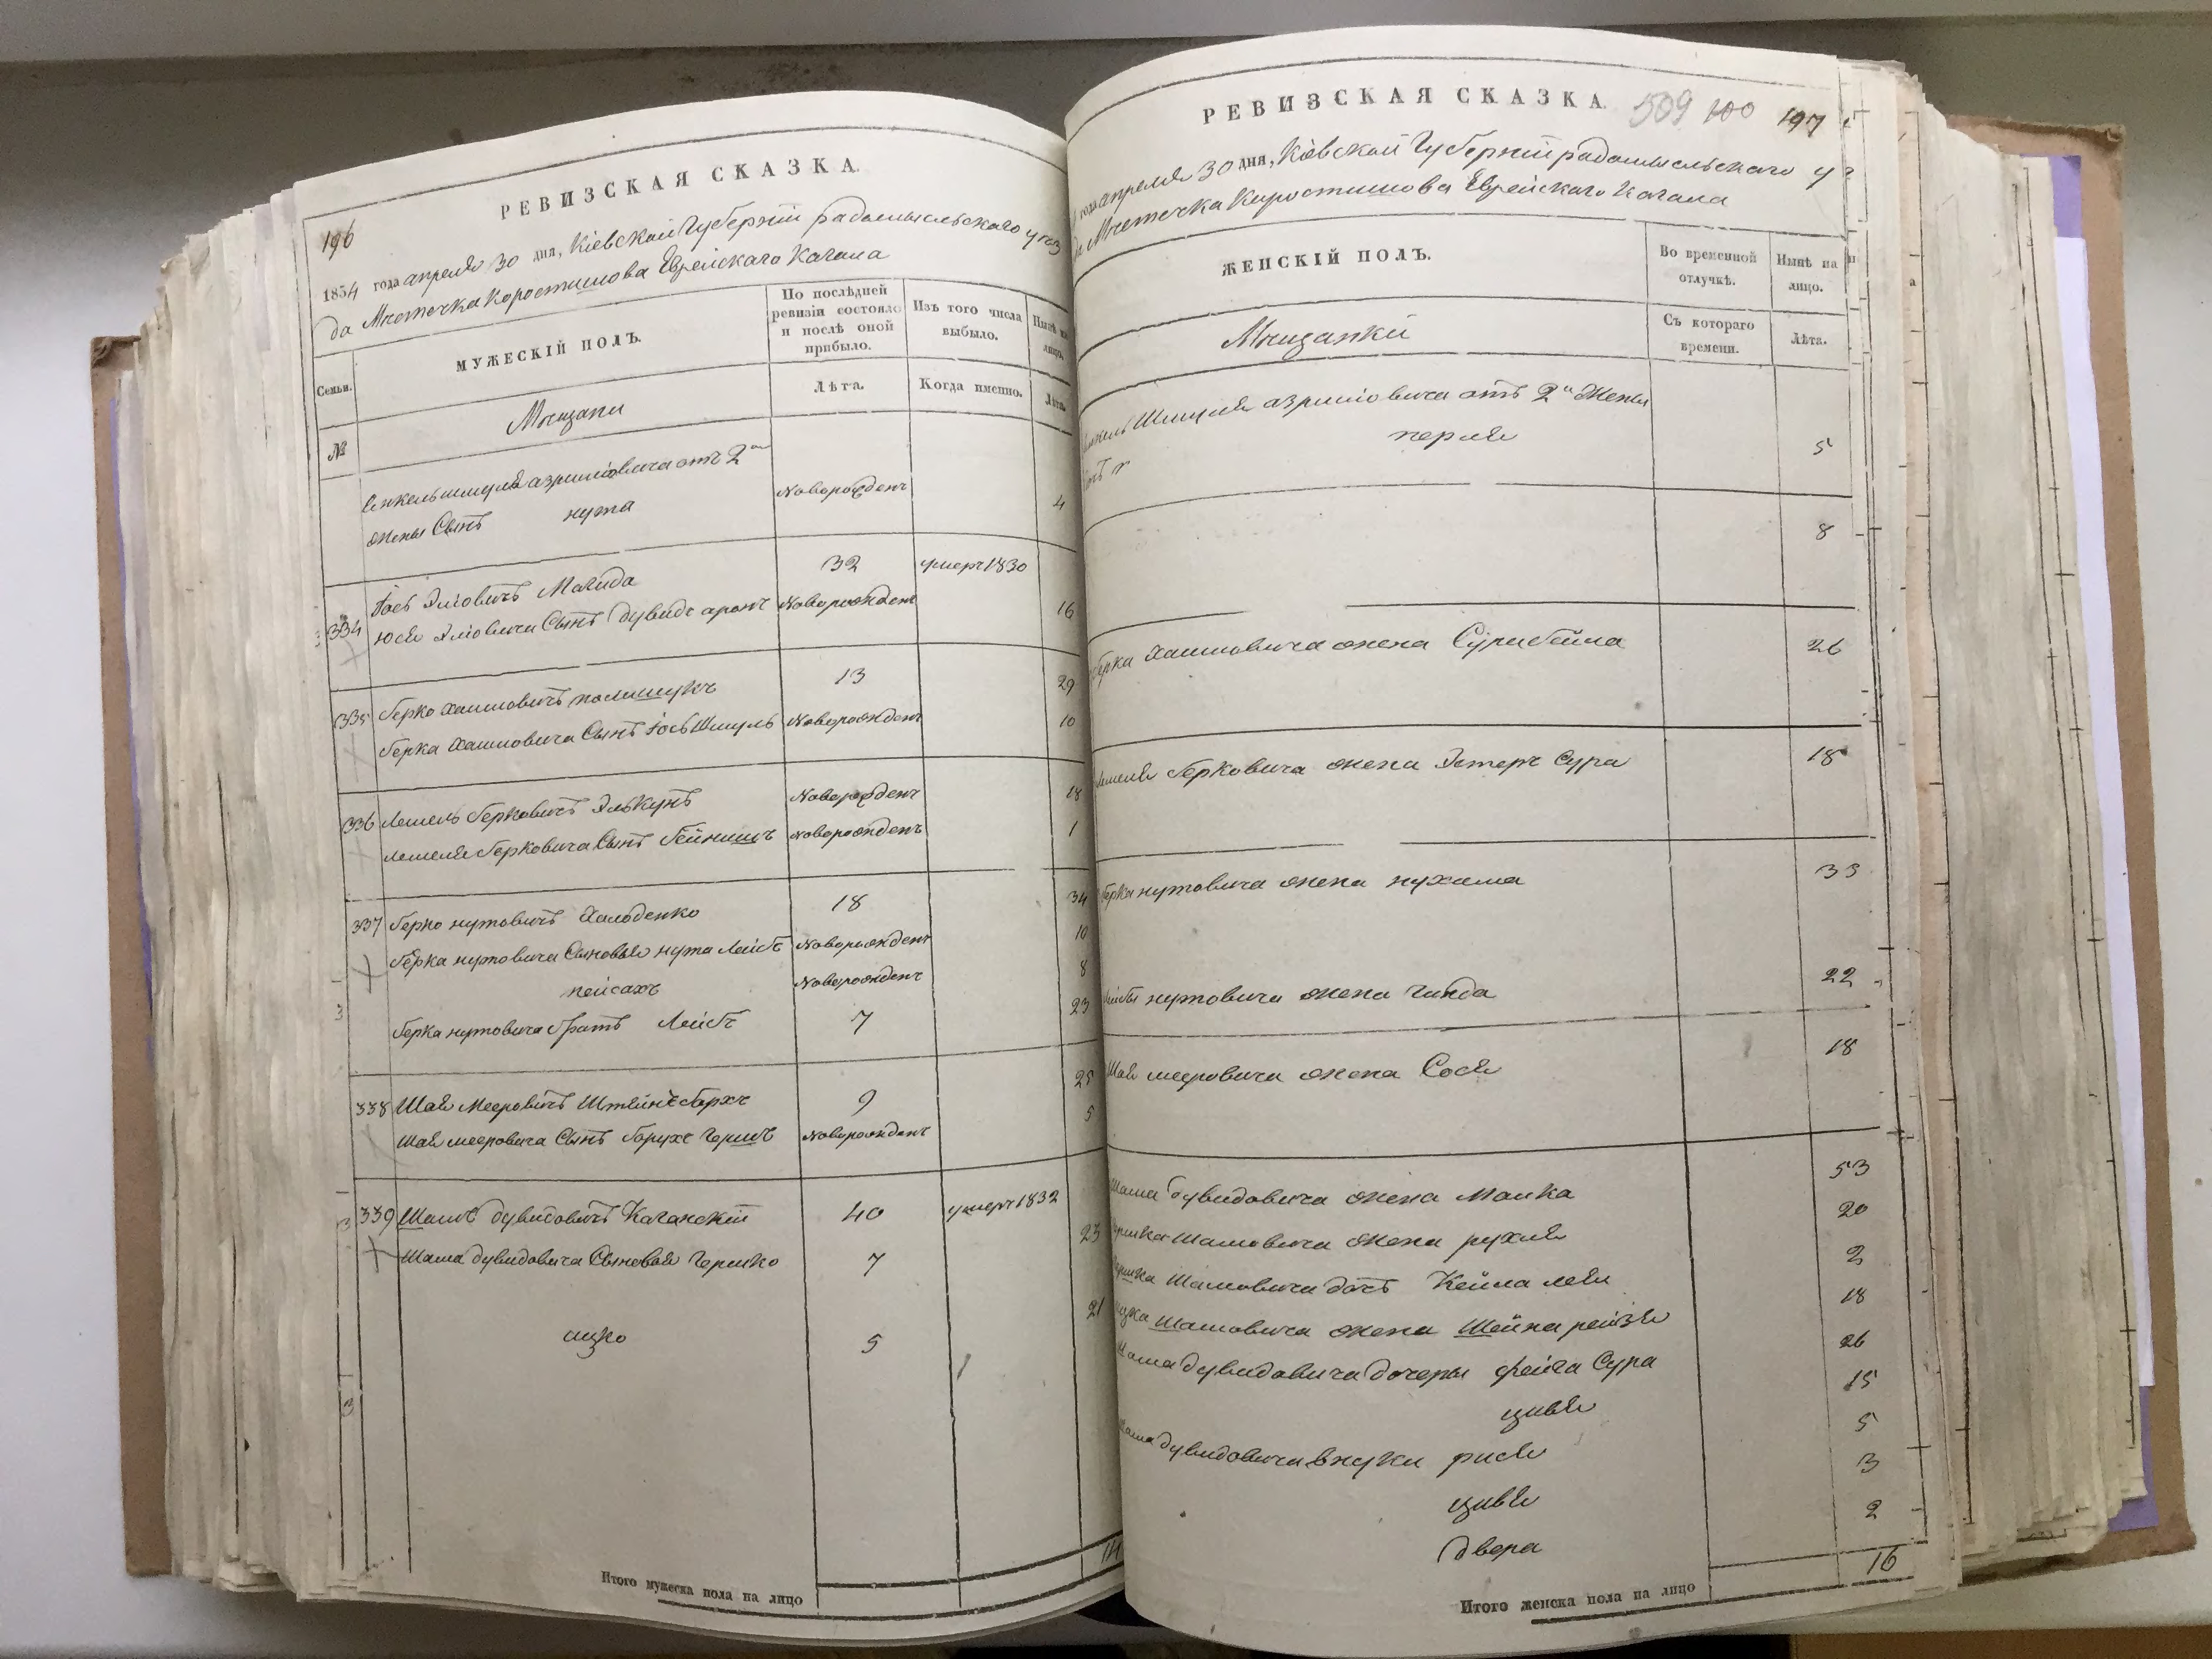 196
РЕВИЗСКАЯ СКАЗКА.
1834 года апреля 30 дня, Кіевской Губерніи радомысльского уез
да Местечка Коростишова Еврейскаго Кагала
Семьи.
МУЖЕСКІЙ ПОЛЪ.
По послѣдней ревизіи состояло и послѣ оной прибыло.
Изъ того числа выбыло.
Нынѣ на лицо.
№
Мещане
Лѣта.
Когда именно.
Лѣта.
шмуля азриліовича отъ 2й
жены Сынъ нута Новорожденъ 4
334 Іось Эліовичъ Магида 32 умеръ 1830
Юся Эліовича Сынъ Дувидъ аронъ Новорожденъ 16
335 берко хаимовичъ полишукъ 13 29
берка хаимовича Сынъ Іось Шмуль Новорожденъ 10
336 Лемель берковичъ Элькунъ Новорожденъ 18
Лемеля берковича Сынъ бейнишъ Новорожденъ 1
337 берко нутовичъ Халоденко 18 34
берка нутовича Сыновья нута Лейбъ Новорожденъ 10
пейсахъ Новорожденъ 8
берка нутовича братъ Лейбъ 7 23
338 Шая Мееровичъ Штейнбархъ 9 25
Шая мееровича Сынъ борухъ гершъ Новорожденъ 5
339 Шамъ дувидовичъ Каганскій 40 умеръ 1832
Шама дувидовича Сыновья гершко 7 23
ицко 5 21
Итого мужеска пола на лицо 14
РЕВИЗСКАЯ СКАЗКА. 509 100 197
года апреля 30 дня, Кіевской Губерніи радомысльскаго у
да Местечка Коростишова Еврейскаго Кагала
ЖЕНСКІЙ ПОЛЪ.
Во временной отлучкѣ.
Нынѣ на лицо.
Мещанки
Съ котораго времени.
Лѣта.
Шмуля азриліовича отъ 2й Жены
перля 5
8
берка Хаимовича жена Сурибейла 26
Лемеля берковича жена Эстеръ Сура 18
берка нутовича жена нухама 33
Лейбы нутовича жена гинда 22
Шая мееровича жена Сося 18
Шама дувидовича жена Малка 53
гершка Шамовича жена рухля 20
гершка Шамовича дочь Кейла лея 2
ицка Шамовича жена Шейна рейзя 18
Шама дувидовича дочеры фейга Сура 26
цивя 15
Шама дувидовича внуки фися 5
цивя 3
двера 2
Итого женска пола на лицо 16